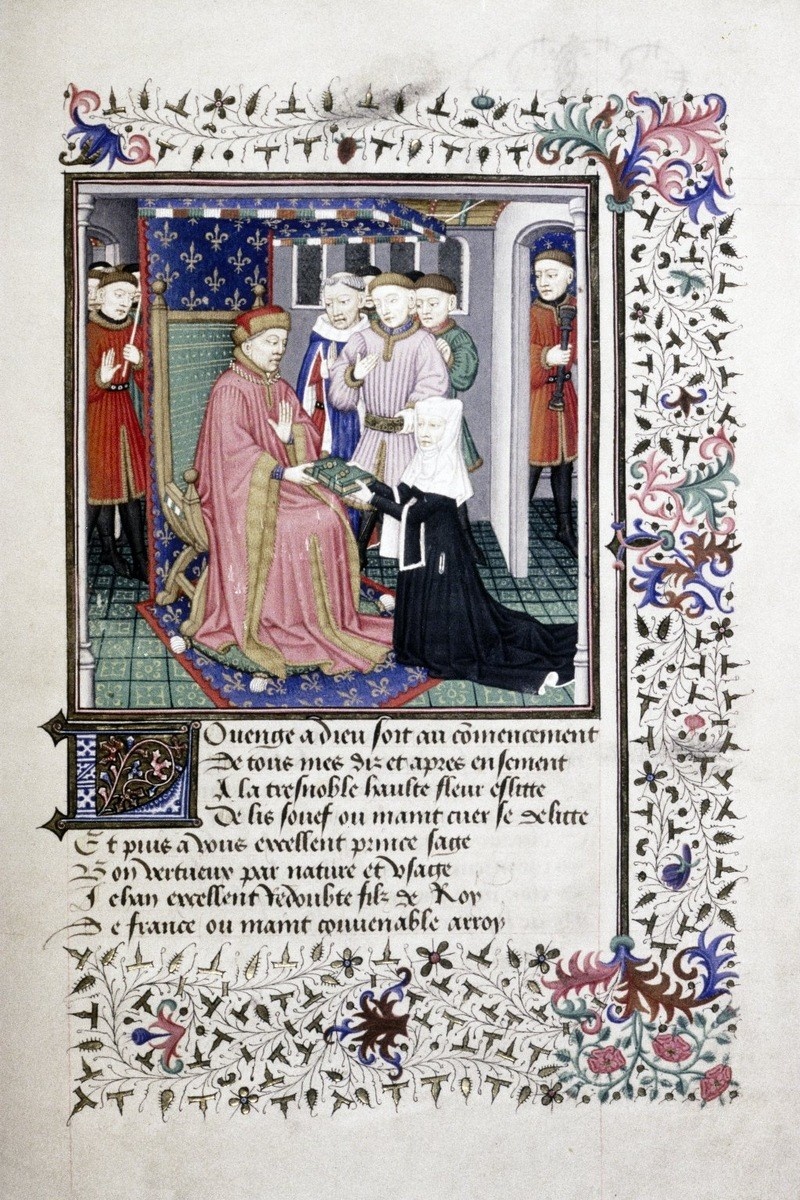 Louenge a dieu soit au cõmencement
De tous mes diz et apres ensement
A la tresnoble haulte fleur eslitte
De lis souef ou maint cuer se delitte
Et puis a vous excellent prince sage
Bon vertueux par nature et vsage
Jehan excellent redoubte filz de Roy
De france ou maint conuenable arroy